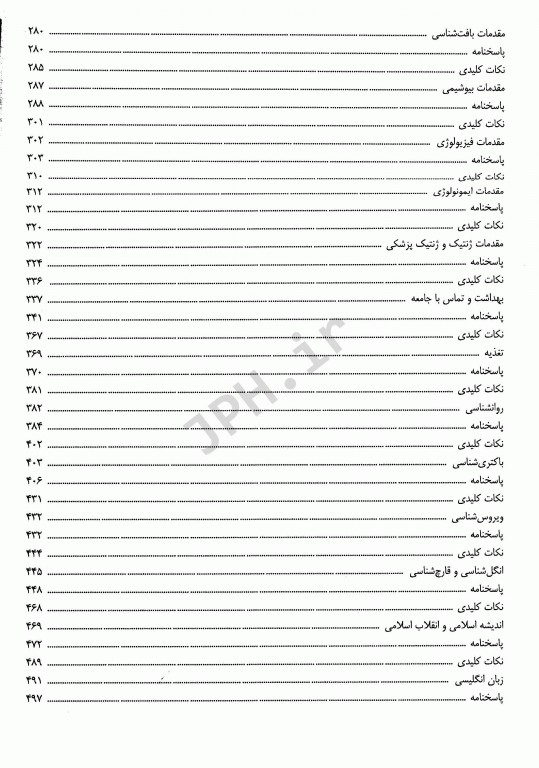 مقدمات بافت‌شناسی ۲۸۰
پاسخنامه ۲۸۰
نکات کلیدی ۲۸۵
مقدمات بیوشیمی ۲۸۷
پاسخنامه ۲۸۸
نکات کلیدی ۳۰۱
مقدمات فیزیولوژی ۳۰۲
پاسخنامه ۳۰۳
نکات کلیدی ۳۱۰
مقدمات ایمونولوژی ۳۱۲
پاسخنامه ۳۱۲
نکات کلیدی ۳۲۰
مقدمات ژنتیک و ژنتیک پزشکی ۳۲۲
پاسخنامه ۳۲۴
نکات کلیدی ۳۳۶
بهداشت و تماس با جامعه ۳۳۷
پاسخنامه ۳۴۱
نکات کلیدی ۳۶۷
تغذیه ۳۶۹
پاسخنامه ۳۷۰
نکات کلیدی ۳۸۱
روانشناسی ۳۸۲
پاسخنامه ۳۸۴
نکات کلیدی ۴۰۲
باکتری‌شناسی ۴۰۳
پاسخنامه ۴۰۶
نکات کلیدی ۴۳۱
ویروس‌شناسی ۴۳۲
پاسخنامه ۴۳۲
نکات کلیدی ۴۴۴
انگل‌شناسی و قارچ‌شناسی ۴۴۵
پاسخنامه ۴۴۸
نکات کلیدی ۴۶۸
اندیشه اسلامی و انقلاب اسلامی ۴۶۹
پاسخنامه ۴۷۲
نکات کلیدی ۴۸۹
زبان انگلیسی ۴۹۱
پاسخنامه ۴۹۷
JPH.ir